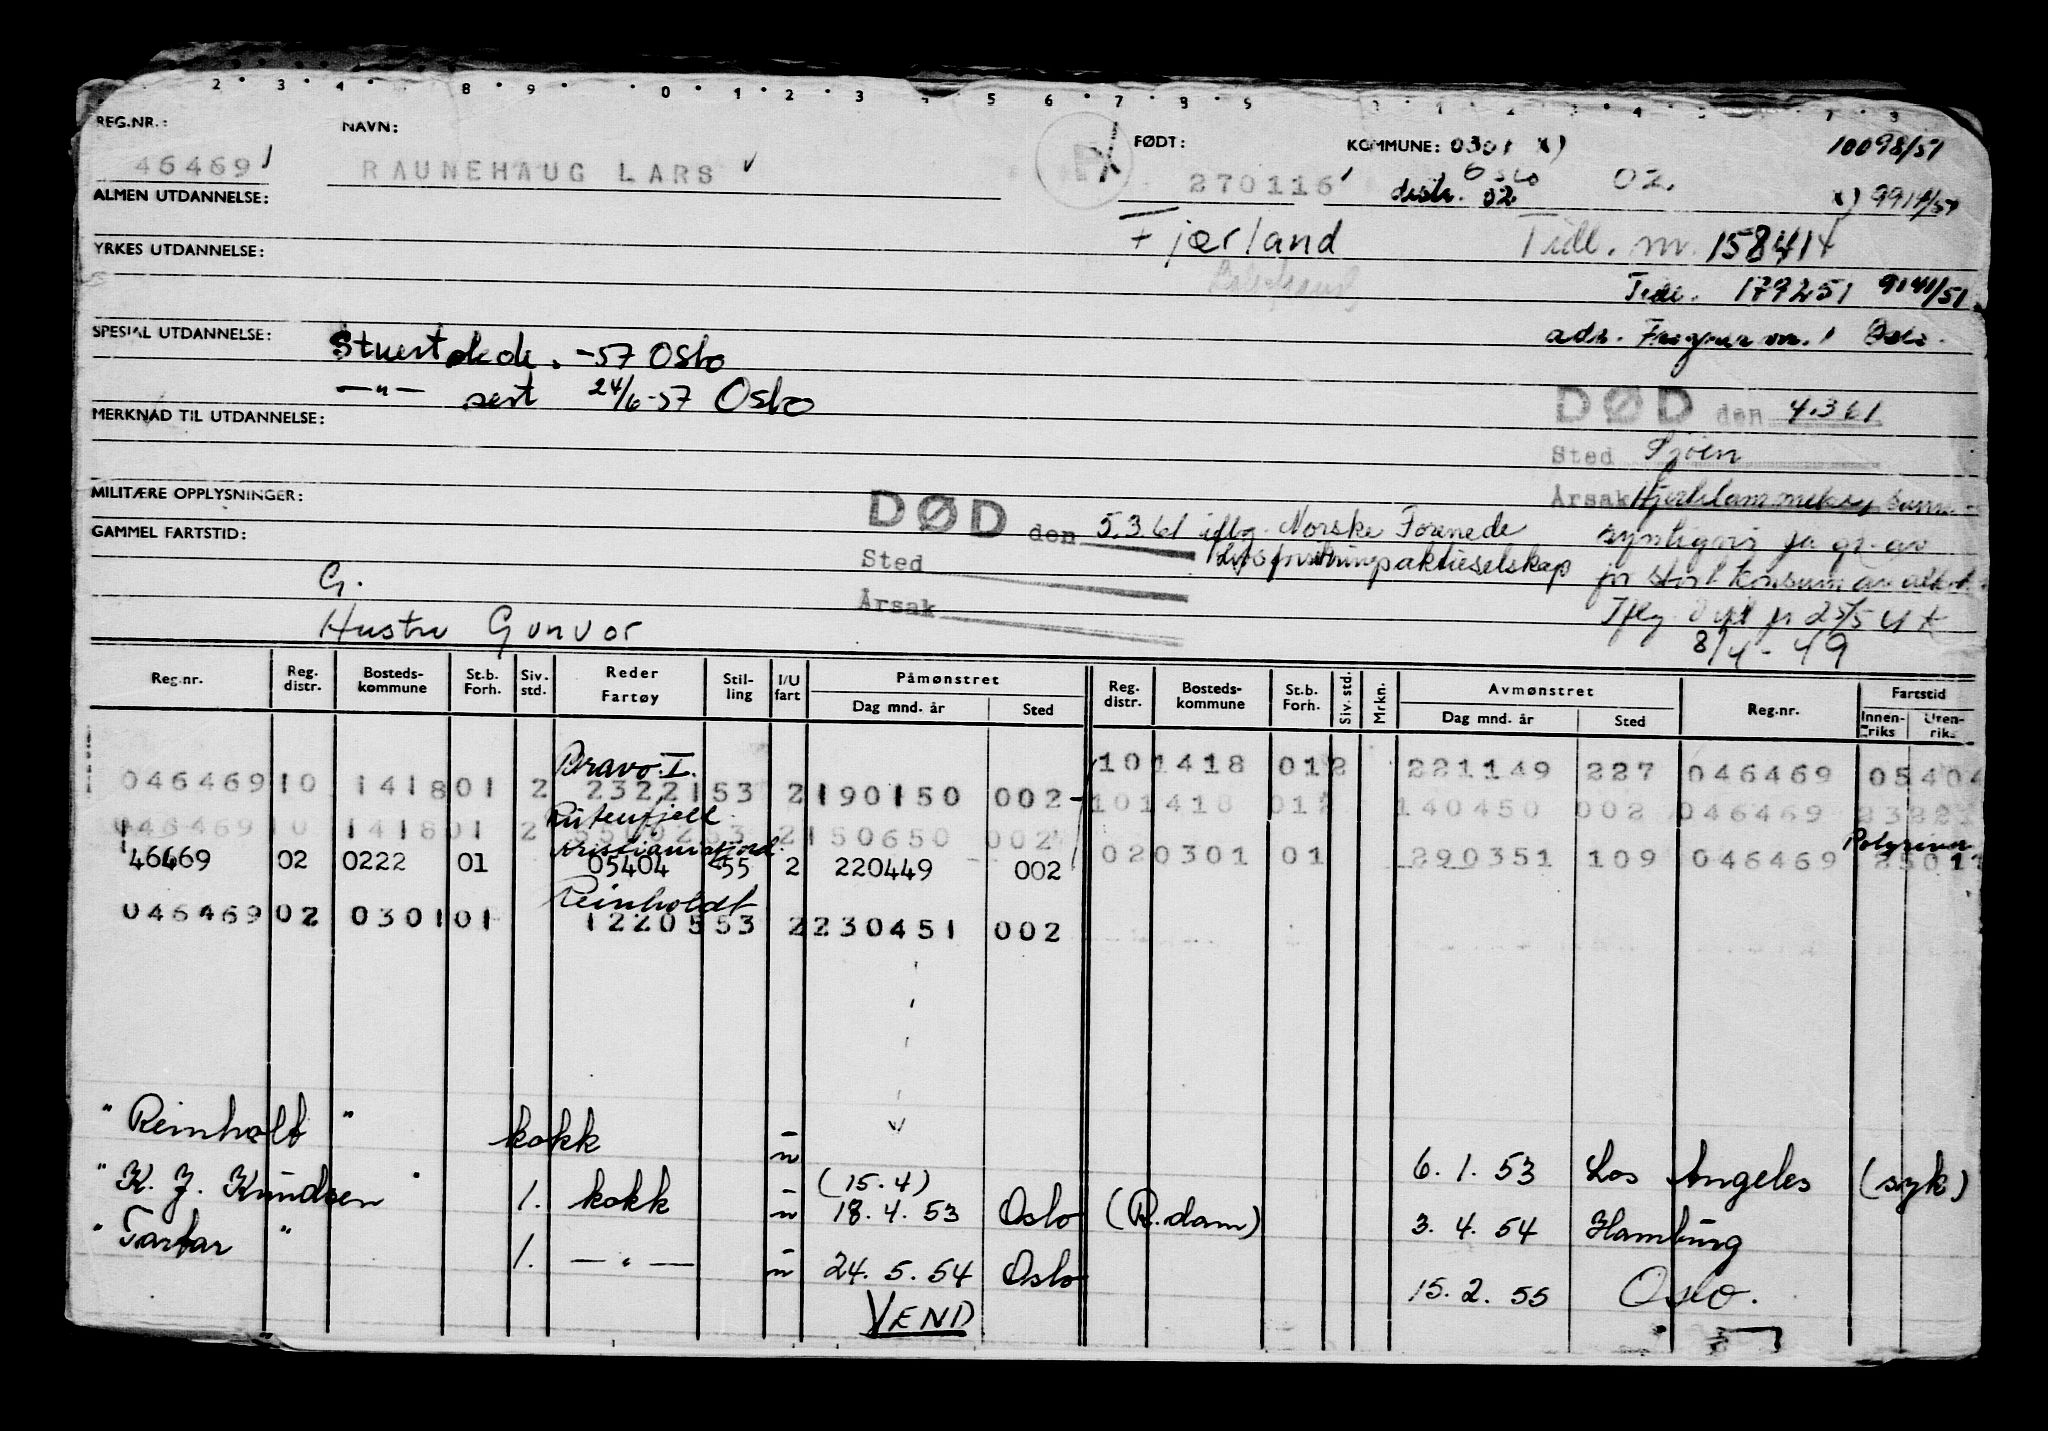 2 3 4 8 9 0 1 2 3 5 6 7 8 9 1 2 4 5 7 8
REG.NR.: NAVN: FØDT: KOMMUNE: 0301 x) 10098/51
46469 RAUNEHAUG LARS 270116 Oslo 02.
distr. 02 x) 9914/51
ALMEN UTDANNELSE:
Fjærland Tidl. nr. 158414
YRKES UTDANNELSE:
Tidl. 179251 9141/51
SPESIAL UTDANNELSE: Stuertskole. -57 Oslo adr. Oslo.
—"— sert 24/6-57 Oslo
DØD den 4.3.61
MERKNAD TIL UTDANNELSE:
Sted Sjøen
MILITÆRE OPPLYSNINGER: Årsak
DØD den 5.3.61 iflg. Norske Forenede
Livsforsikringsaktieselskap
GAMMEL FARTSTID: Sted
G. Årsak
Hustru Gunvor
8/4-49
Reg.nr. Reg. distr. Bosteds-kommune St.b. Forh. Siv. std. Reder Fartøy Stil-ling I/U fart Påmønstret Dag mnd. år Sted Reg. distr. Bosteds-kommune St.b. Forh. Siv. std. Mrkn. Avmønstret Dag mnd. år Sted Reg.nr. Fartstid Innen-riks Uten-riks
Bravo I.
046469 10 1418 01 2 23221 53 2 190150 002 10 1418 01 2 221149 227 046469 05404
Rutenfjell
046469 10 1418 01 2 53 2 150650 002 10 1418 01 2 140450 002 046469 2322
Kristianiafjord. Polyriver
46469 02 0222 01 05404 55 2 220449 002 02 0301 01 290351 109 046469
Reinholdt
046469 02 0301 01 12205 53 2 230451 002
" Reinholt " kokk u 6.1.53 Los Angeles (syk)
" K. J. Knudsen " 1. kokk u (15.4) 18.4.53 Oslo (R.dam) 3.4.54 Hamburg
" Tartar " 1. —"— u 24.5.54 Oslo 15.2.55 Oslo.
VEND